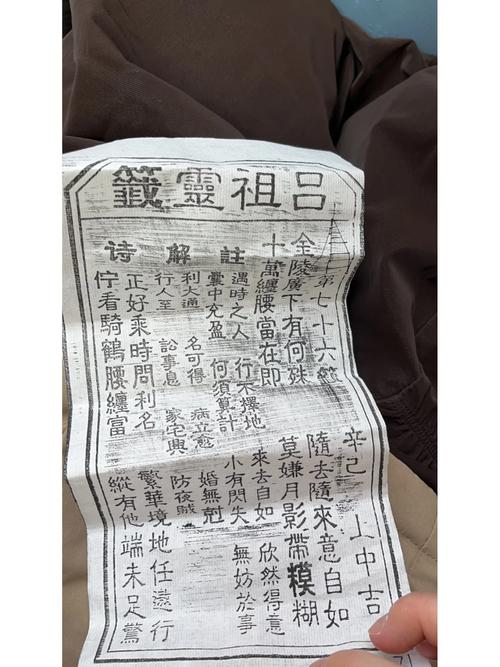 呂祖靈籤
第七十六籤 辛己 上中吉
金陵廣下有何殊 隨去隨來意自如
十萬纏腰當在即 莫嫌月影帶糢糊
註
遇時之人 行不擇地 來去自如 欣然得意
囊中充盈 何須算計 小有閃失 無妨於事
解
利大通 名可得 病立愈 婚無尅
行人至 訟事息 家宅興 防夜賊
诗
正好乘時問利名 繁華境地任遠行
佇看騎鶴腰纏富 縱有他端未足驚